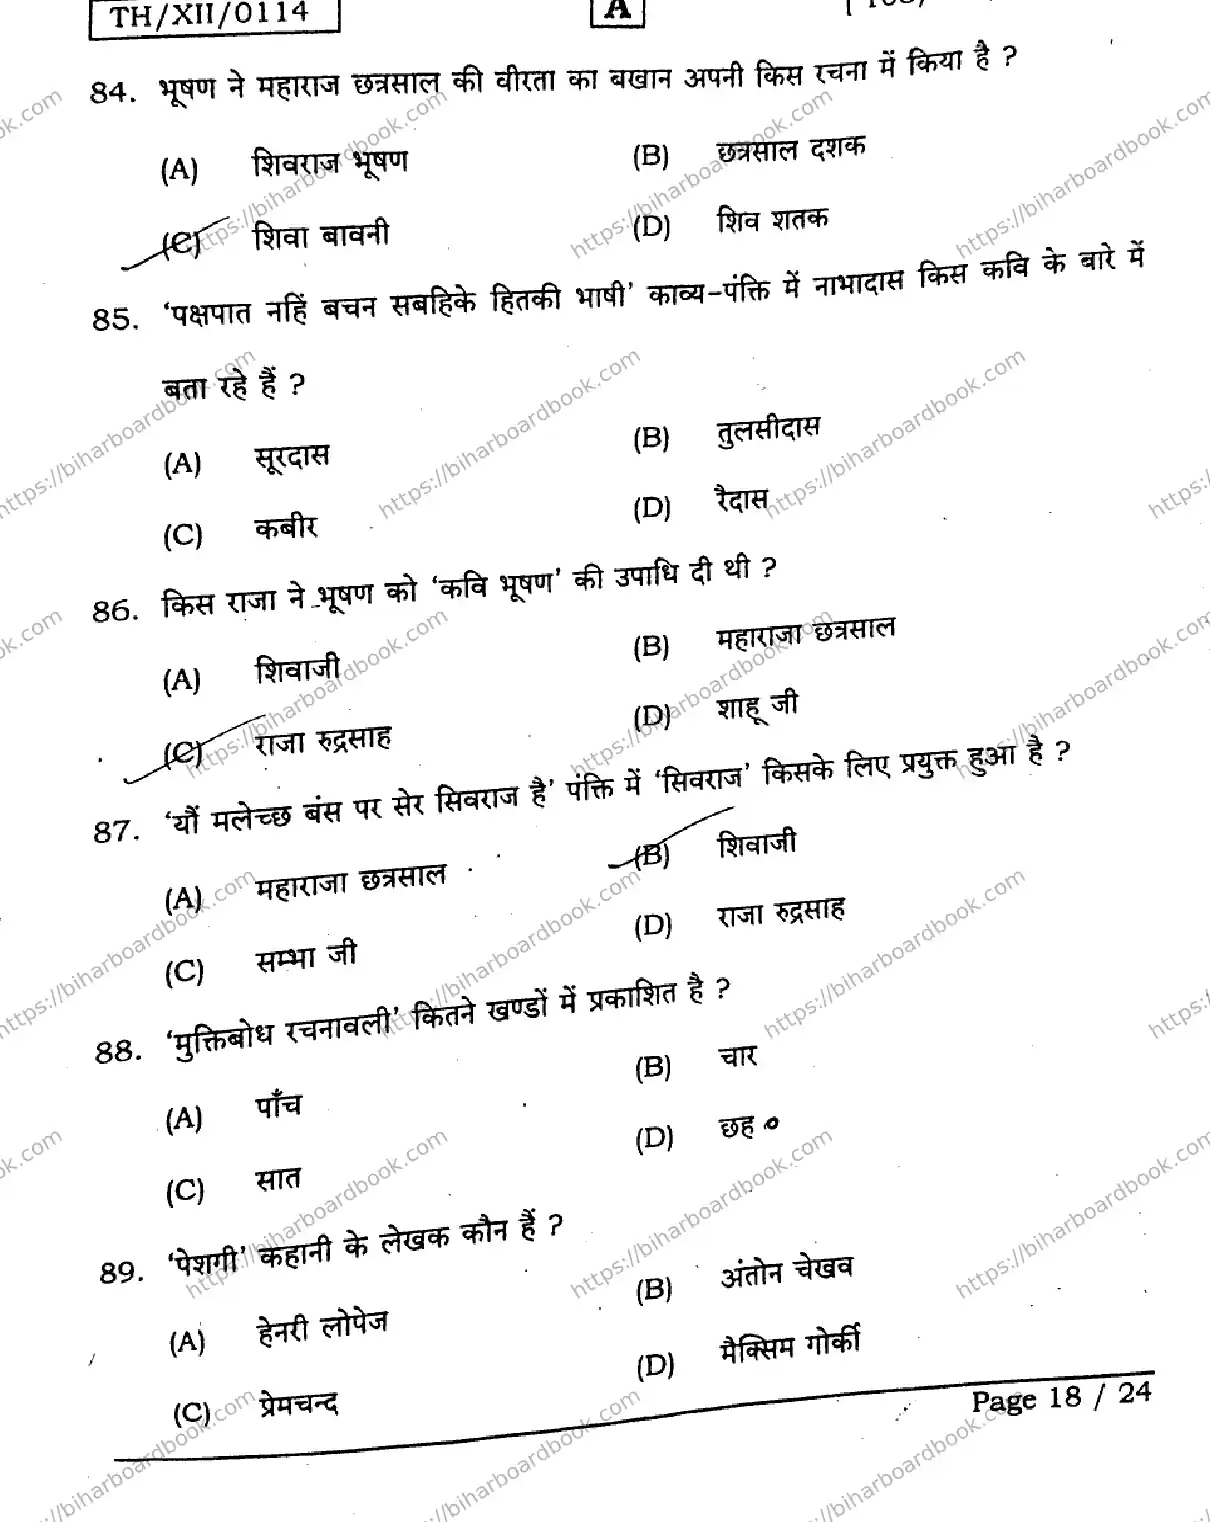 TH/XII/0114 A
84. भूषण ने महाराज छत्रसाल की वीरता का बखान अपनी किस रचना में किया है ?
(A) शिवराज भूषण (B) छत्रसाल दशक
(C) शिवा बावनी (D) शिव शतक
85. ‘पक्षपात नहिं बचन सबहिके हितकी भाषी’ काव्य-पंक्ति में नाभादास किस कवि के बारे में
बता रहे हैं ?
(A) सूरदास (B) तुलसीदास
(C) कबीर (D) रैदास
86. किस राजा ने भूषण को ‘कवि भूषण’ की उपाधि दी थी ?
(A) शिवाजी (B) महाराजा छत्रसाल
(C) राजा रुद्रसाह (D) शाहू जी
87. ‘यौं मलेच्छ बंस पर सेर सिवराज है’ पंक्ति में ‘सिवराज’ किसके लिए प्रयुक्त हुआ है ?
(A) महाराजा छत्रसाल (B) शिवाजी
(C) सम्भा जी (D) राजा रुद्रसाह
88. ‘मुक्तिबोध रचनावली’ कितने खण्डों में प्रकाशित है ?
(A) पाँच (B) चार
(C) सात (D) छह
89. ‘पेशगी’ कहानी के लेखक कौन हैं ?
(A) हेनरी लोपेज (B) अंतोन चेखव
(C) प्रेमचन्द (D) मैक्सिम गोर्की
Page 18 / 24
https://biharboardbook.com